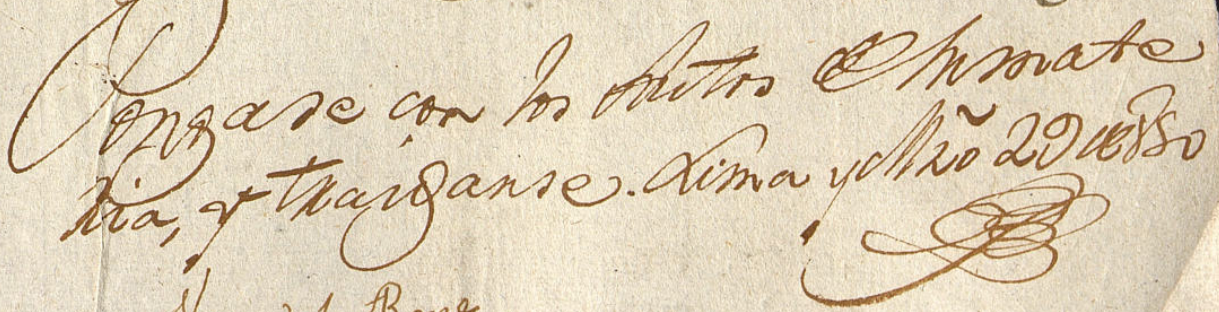 Pongase con los Autos de su mate
ria, y traiganse. Lima y Mzo 29 de 850